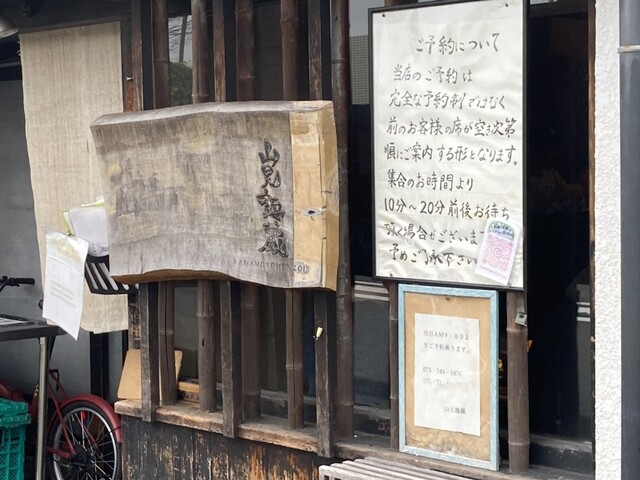 山元麺蔵
YAMAMOTOMENZOU
ご予約について
当店のご予約は
完全な予約制ではなく
前のお客様の席が空き次第
順にご案内する形となります。
集合のお時間より
10分〜20分前後お待ち
頂く場合がございま
予めご了承下さい
当日AM9:00よ
りご予約承ります。
山元麺蔵